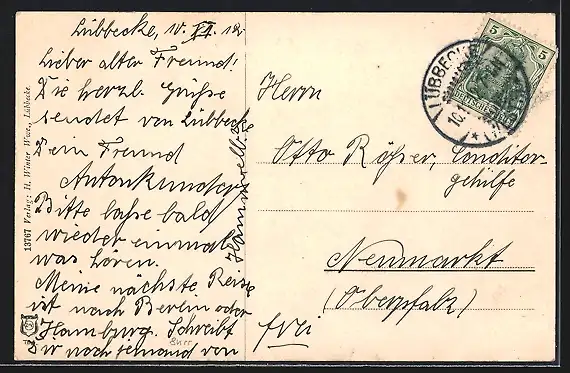 Lübbecke, 10. VI. 12.
Lieber alter Freund!
Die herzl. Grüße
sendet von Lübbecke
Dein Freund
Anton
Bitte lasse bald
wieder einmal
was hören.
Meine nächste Reise
ist nach Berlin oder
Hamburg. Schreibt
Dir noch jemand von
Herrn
Otto Rößer, Conditor-
gehilfe
Neumarkt
(Oberpfalz)
frei
LÜBBECKE
10
5 5
DEUTSCHES REICH
13767 Verlag: H. Winter Wwe., Lübbecke.